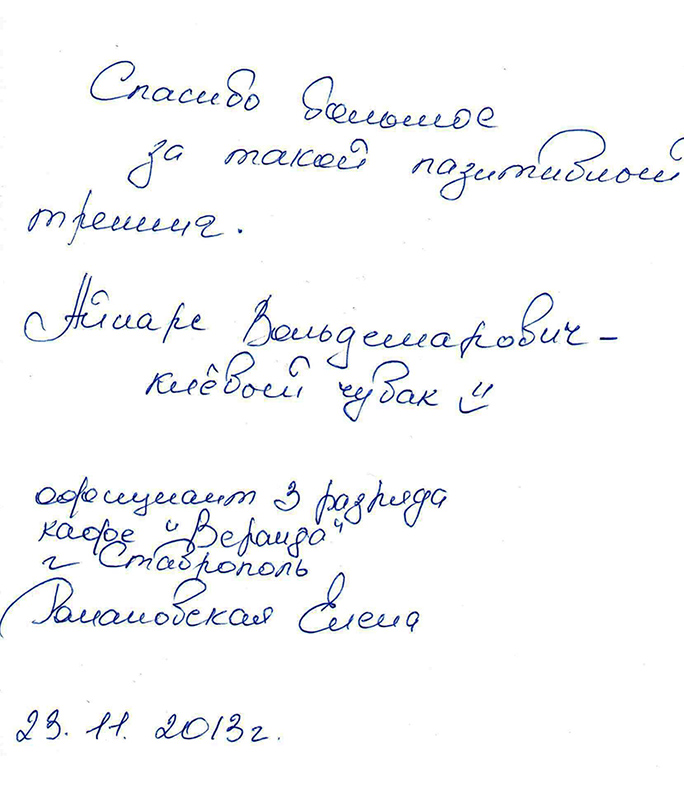 Спасибо большое
за такой позитивный
тренинг.
Айнарс Вольдемарович -
клёвый чувак
официант 3 разряда
кафе "Веранда"
г Ставрополь
Романовская Елена
23. 11. 2013г.